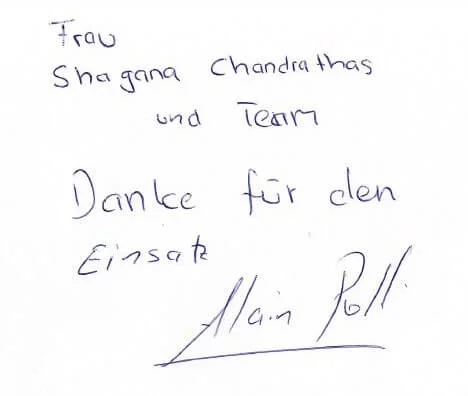 Frau
Shagana Chandrathas
und Team
Danke für den
Einsatz
Alain Poll